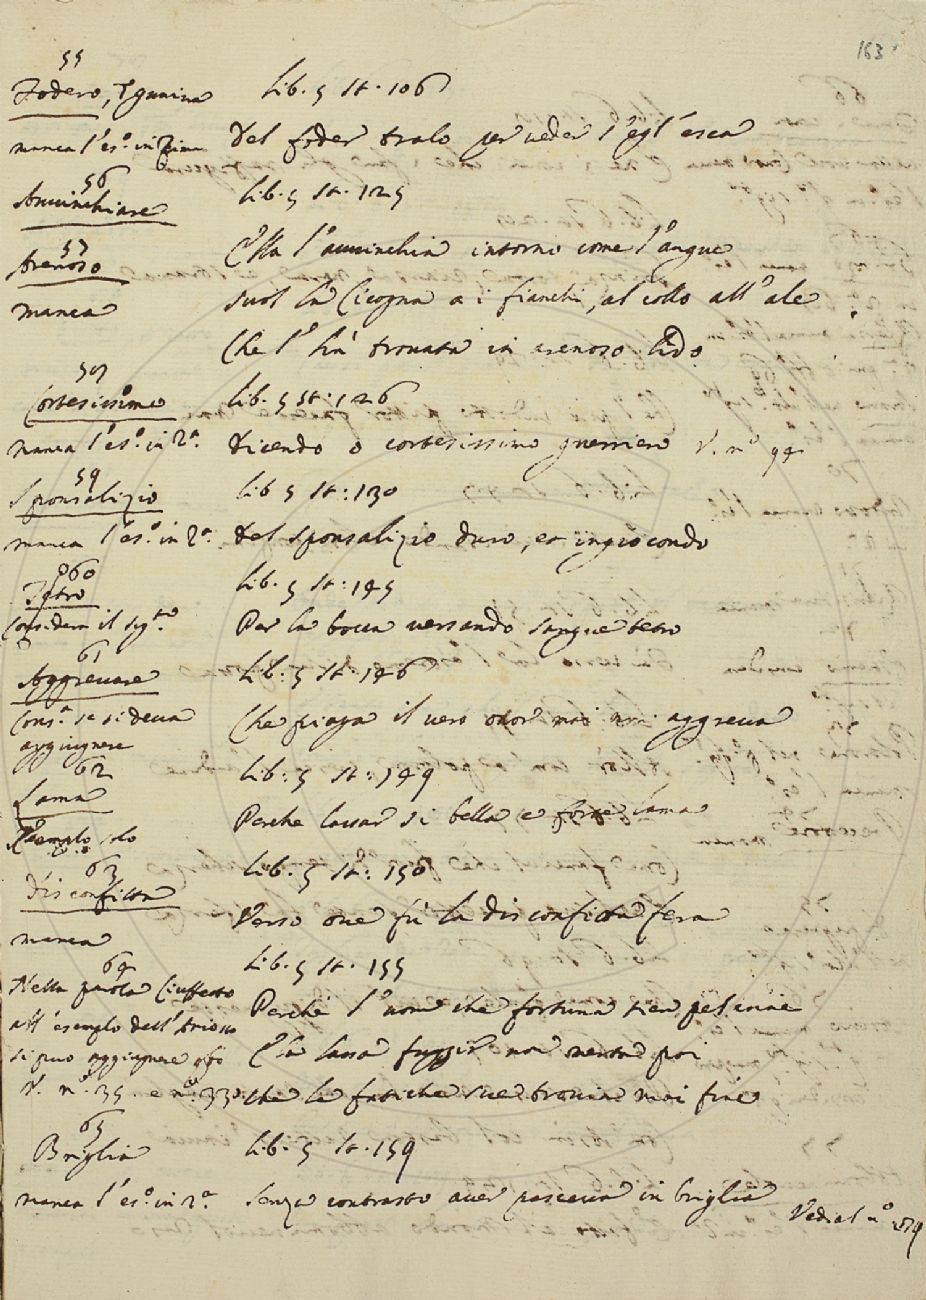 163
55
Fodero,
Lib. 5 St. 106
manca l'es.º in
Del foder tralo per veder l'esca
56
Avvinchiare
Lib. 5 St. 125
57
Arenoso
l'avvinchia intorno come l'angue
manca
suol la Cicogna a i fianchi, al collo all'ale
Che l'hà trovata in arenoso lido
Cortesissimo
Lib. 5 St: 126
manca l'es.º in 2ª.
Dicendo o cortesissimo guerriero V. nº 94
59
Sponsalizio
Lib 5 St: 130
manca l'es.º in 2ª.
Del Sponsalizio duro, et ingiocondo
60
Tetro
Lib. 5 St: 145
Consídera il sig.to
Per la bocca versando sangue tetro
61
Aggrevare
Lib: 5 St. 146
Cons.ª se si deva
aggiugnere
Che piaga il vero mai non aggreva
62
Lama
Lib: 5 St: 149
Esemplo solo
Perche lassar si bella e forte lama
63
Disconfitta
Lib. 5 St: 150
manca
Verso ove fù la disconfitta fera
64
Lib. 5 St. 155
Nella parola Ciuffetto
all'esemplo dell'Ariosto
si può aggiugnere
V. nº. 35. e nº. 330.
Perché l'uom che fortuna tien pel crine
E la lassa fuggir non merta poi
che le fatiche sue trovin mai fine
65
Briglia
Lib. 5 St. 159
manca l'es.º in 2ª
Senza contrasto aver pasceva in briglia
Vedi al nº